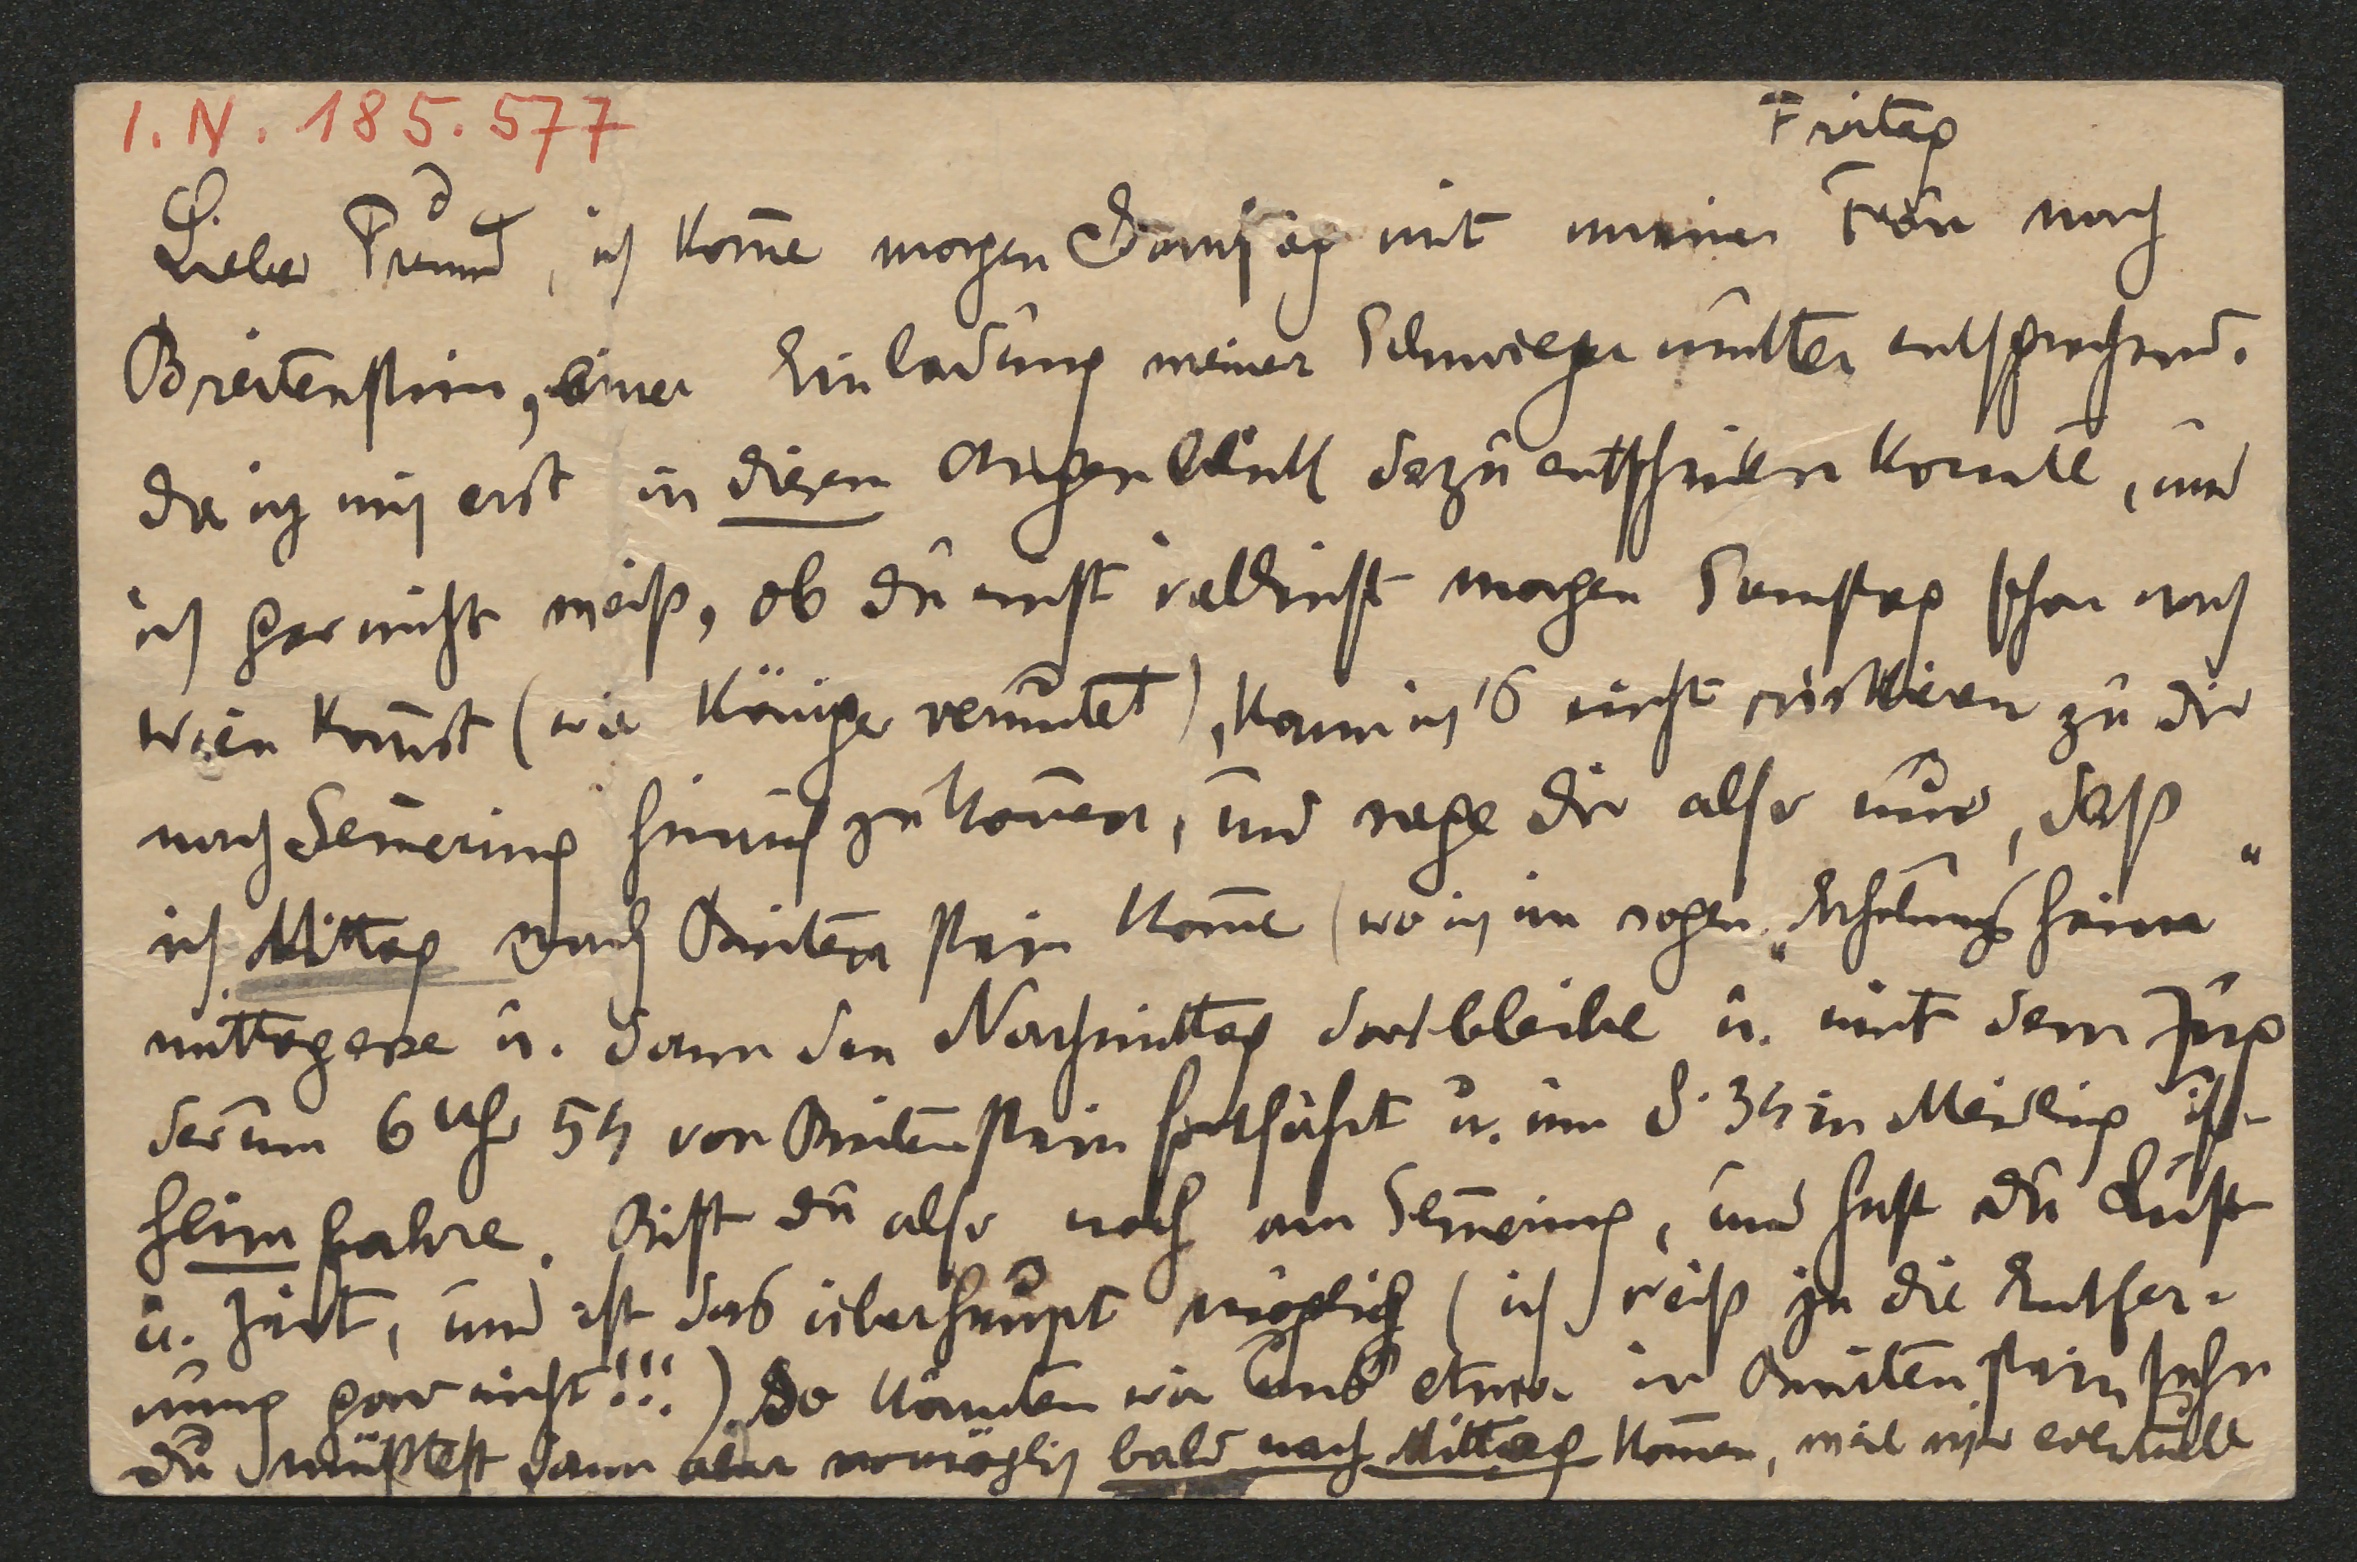 I. N. 185.577
Freitag
Lieber Freund, ich komme morgen Samstag mit meiner Frau nach
Breitenstein, einer Einladung meiner Schwiegermutter entsprechend.
Da ich mich erst in diesem Augenblick dazu entschließen konnte, und
ich gar nicht weiß, ob du nicht vielleicht morgen Samstag schon nach
Wien kommst (wie Königer vermutet), kann ich's nicht riskieren zu dir
nach Semmering hinauf zu kommen, und sage dir also nur, daß
ich Mittag nach Breitenstein komme (wo ich im sogen. „Erholungsheim“
mittagesse u. dann den Nachmittag dortbleibe u. mit dem Zug
der um 6 Uhr 54 von Breitenstein fortfährt u. um 8.34 in Meidling ist
heimfahre. Bist du also noch am Semmering, und hast du Lust
u. Zeit, und ist das überhaupt möglich (ich weiß ja die Entfer-
nung gar nicht!!!). So könnten wir uns etwa in Breitenstein sehn
du müßtest dann aber womöglich bald nach Mittag kommen, weil wir eventuell